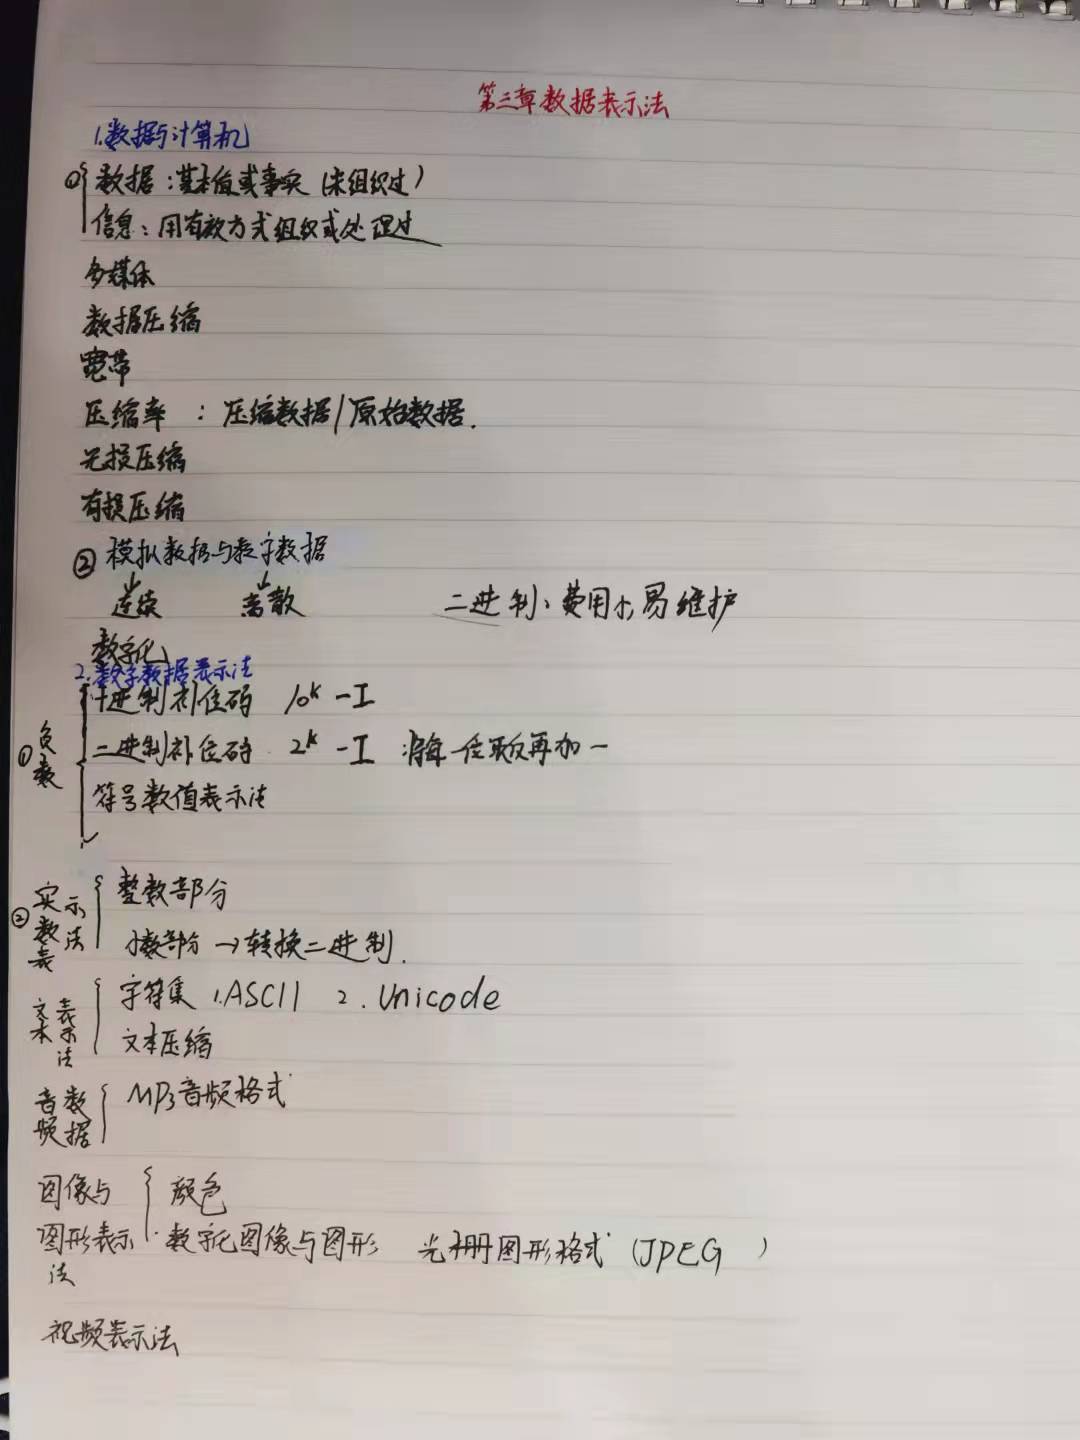 第三章数据表示法
1.数据与计算机
① 数据：基本值或事实（未组织过）
信息：用有效方式组织或处理过
多媒体
数据压缩
宽带
压缩率：压缩数据/原始数据.
无损压缩
有损压缩
② 模拟数据与数字数据
↓连续 ↓离散 二进制：费用小,易维护
数字化
2.数字数据表示法
① 负数
十进制补位码 10^k - I
二进制补位码 2^k - I 将每一位取反再加一
符号数值表示法
② 实数表示法
整数部分
小数部分→转换二进制.
文本表示法
字符集 1.ASCII 2.Unicode
文本压缩
音频数据
MP3音频格式
图像与图形表示法
颜色
数字化图像与图形 光栅图形格式（JPEG ）
视频表示法